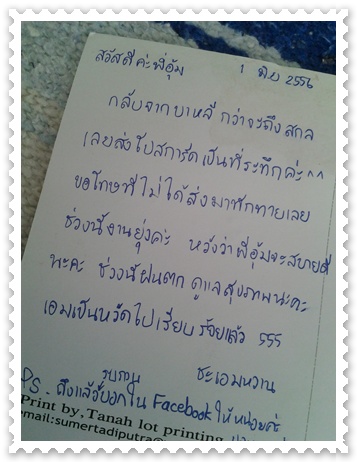 สวัสดีค่ะพี่อุ้ม 1 มิ.ย 2556
กลับจากบาหลี กว่าจะถึงสกล
เลยส่งโปสการ์ดเป็นที่ระทึกค่ะ^^
ขอโทษที่ไม่ได้ส่งมาทักทายเลย
ช่วงนี้งานยุ่งค่ะ หวังว่าพี่อุ้มจะสบายดี
นะคะ ช่วงนี้ฝนตก ดูแลสุขภาพนะคะ
เอมเป็นหวัดไปเรียบร้อยแล้ว 555
รบกวน ชะเอมหวาน
PS. ถึงแล้วบอกใน Facebook ให้หน่อยค่ะ
Print by, Tanah lot printing
email:sumertadiputra@